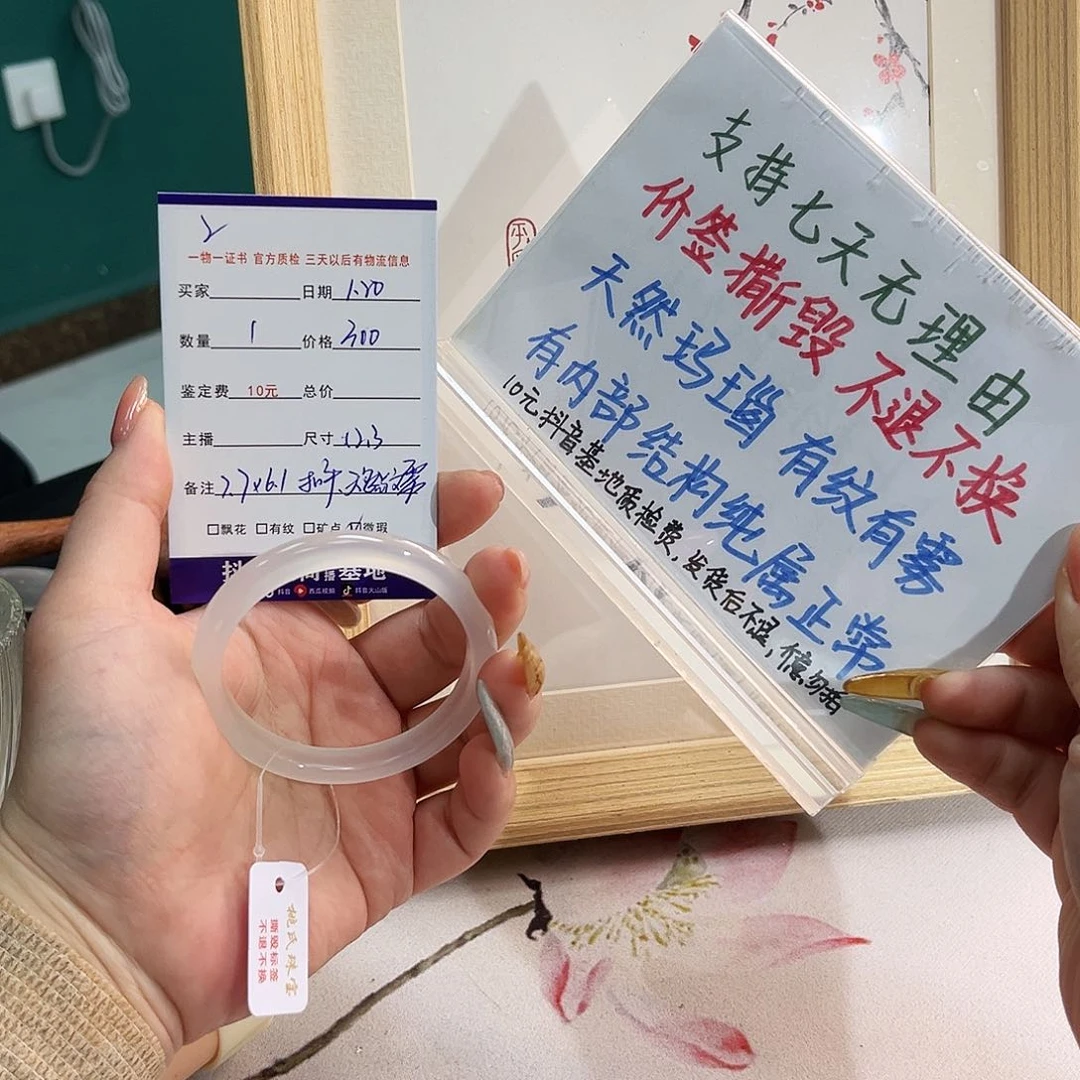 一物一证书 官方质检 三天以后有物流信息
买家 日期 1.20
数量 1 价格 300
鉴定费 10元 总价
主播 尺寸
备注 7.7×6.1
□飘花 □有纹 □矿点 微瑕
播基地
抖音 西瓜视频 抖音火山版
支持七天无理由
价签撕毁 不退不换
天然玛瑙 有纹有雾
有内部结构纯属正常
10元抖音基地质检费,发货后不退,慎勿拍
姚氏珠宝
撕毁标签
不退不换